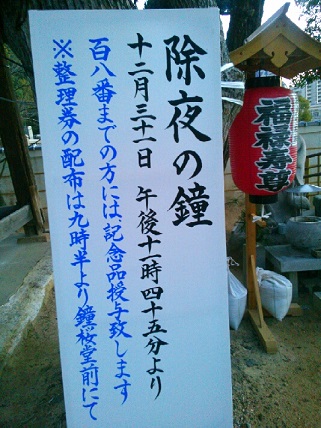 除夜の鐘
十二月三十一日 午後十一時四十五分より
百八番までの方には記念品授与致します
※整理券の配布は九時半より鐘桜堂前にて
福禄寿尊